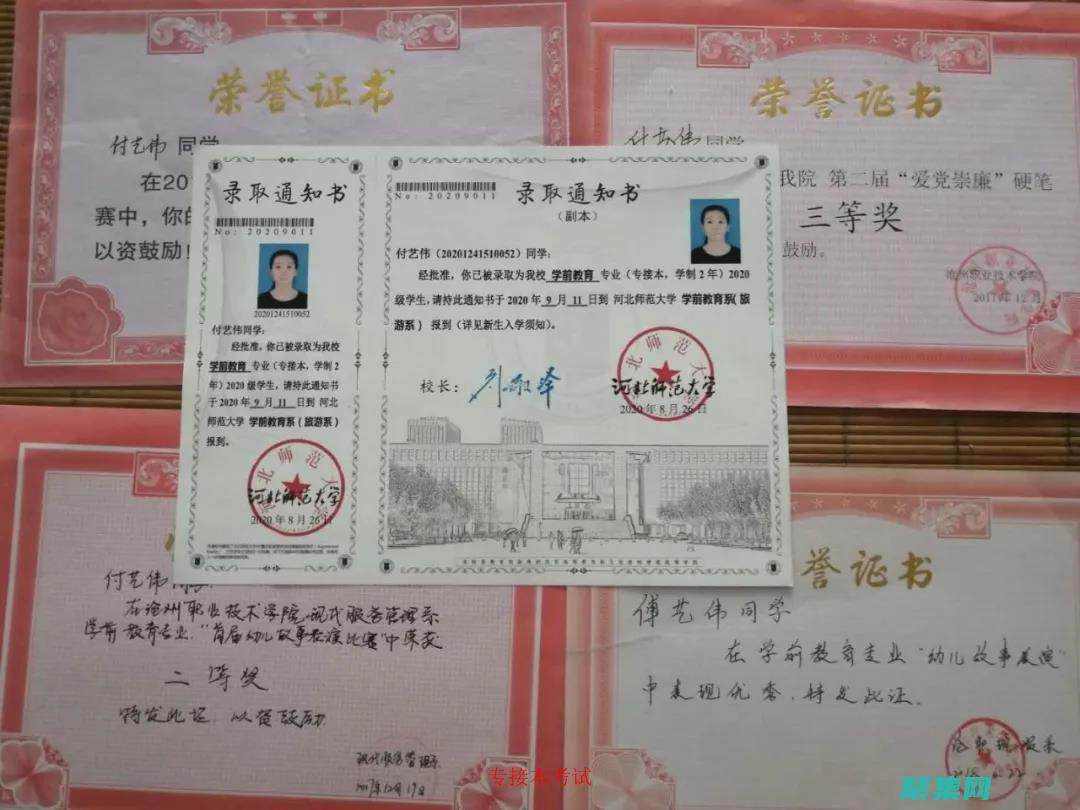 荣誉证书
付艺伟 同学
在20
赛中，你的
以资鼓励
荣誉证书
付艺伟同学
我院 第二届“爱党崇廉”硬笔
三等奖
鼓励。
沧州职业技术学院
2017年12月
录取通知书
No: 20209011
20201241510052
付艺伟同学:
经批准，你已被录取为我校
学前教育 专业（专接本，学制2
年）2020级学生，请持此通知书
于2020年 9 月 11 日到 河北
师范大学 学前教育系（旅游系）
报到。
河北师范大学
2020年8月26日
No: 20209011
录取通知书
（副本）
付艺伟（20201241510052）同学:
经批准，你已被录取为我校 学前教育 专业（专接本，学制2年）2020
级学生，请持此通知书于2020年 9 月 11 日到 河北师范大学 学前教育系（旅
游系） 报到（详见新生入学须知）。
校长：
河北师范大学
2020年8月26日
付艺伟同学:
在沧州职业技术学院现代服务管理系
学前教育专业，“首届幼儿故事表演比赛”中荣获
二等奖
特发此证，以资鼓励
现代服务管理系
2017年12月19日
誉证书
傅艺伟同学
在学前教育专业“幼儿故事表演”
中表现优秀，特发此证。
专接本考试
聚集网